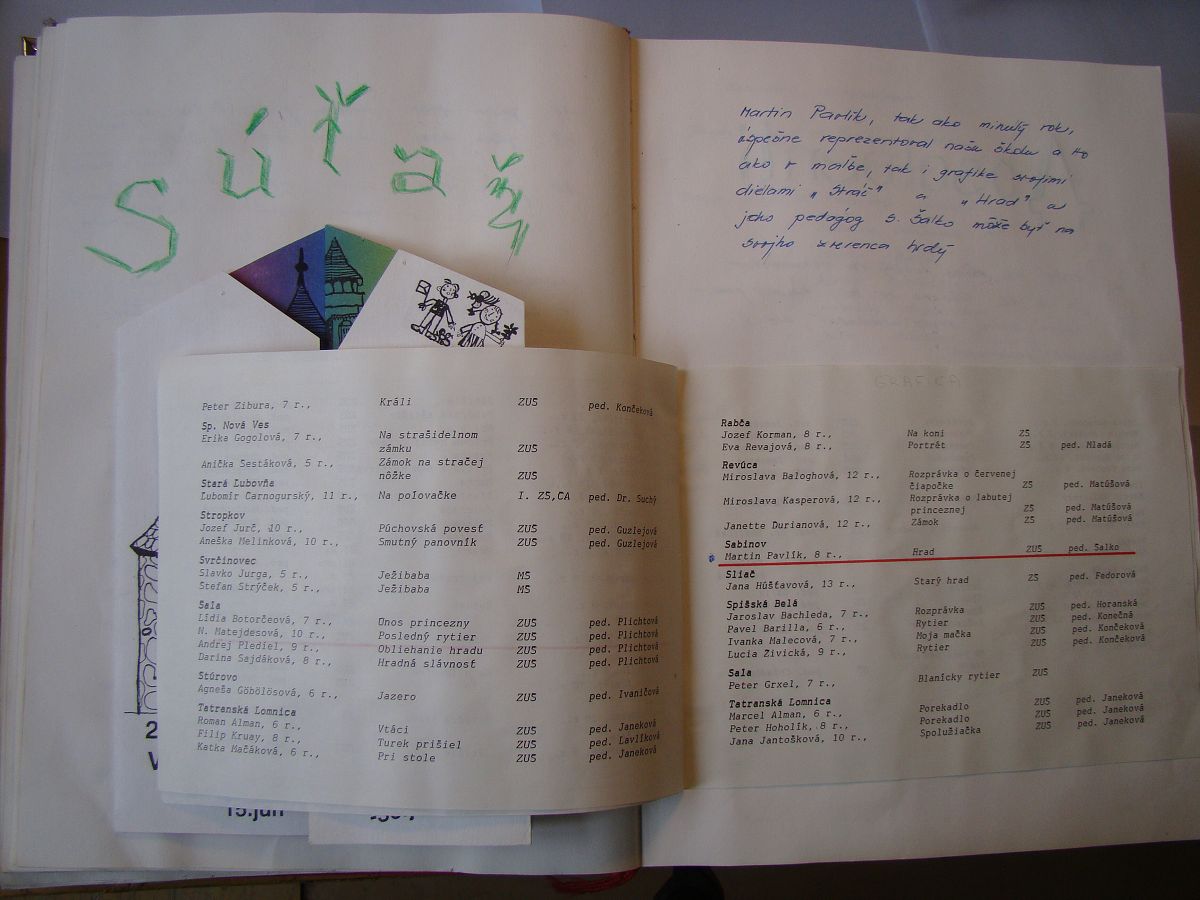 Súťaž
Martin Pavlík, tak ako minulý rok,
úspešne reprezentoval našu školu a to
ako v maľbe, tak i grafike svojimi
dielami „Stráč" a „Hrad" a
jeho pedagóg s. Šalko môže byť na
svojho zverenca hrdý
Peter Zibura, 7 r., Králi ZUŠ ped. Končeková
Sp. Nová Ves
Erika Gogolová, 7 r., Na strašidelnom
zámku ZUŠ
Anička Sestáková, 5 r., Zámok na stračej
nôžke ZUŠ
Stará Ľubovňa
Ľubomír Čarnogurský, 11 r., Na poľovačke I. ZŠ,CA ped. Dr. Suchý
Stropkov
Jozef Jurč, 10 r., Púchovská povesť ZUŠ ped. Guzlejová
Aneška Melinková, 10 r., Smutný panovník ZUŠ ped. Guzlejová
Svrčinovec
Slavko Jurga, 5 r., Ježibaba MŠ
Stefan Strýček, 5 r., Ježibaba MŠ
Sala
Lídia Botorčeová, 7 r., Únos princezny ZUŠ ped. Plichtová
N. Matejdesová, 10 r., Posledný rytier ZUŠ ped. Plichtová
Andrej Plediel, 9 r., Obliehanie hradu ZUŠ ped. Plichtová
Darina Sajdáková, 8 r., Hradná slávnosť ZUŠ ped. Plichtová
Stúrovo
Agneša Göbölösová, 6 r., Jazero ZUŠ ped. Ivaničová
Tatranská Lomnica
Roman Alman, 6 r., Vtáci ZUŠ ped. Janeková
Filip Kruay, 8 r., Turek prišiel ZUŠ ped. Lavlíková
Katka Mačáková, 6 r., Pri stole ZUŠ ped. Janeková
15.jún
GRAFICA
Rabča
Jozef Korman, 8 r., Na koni ZŠ
Eva Revajová, 8 r., Portrét ZŠ ped. Mladá
Revúca
Miroslava Baloghová, 12 r., Rozprávka o červenej
čiapočke ZŠ ped. Matúšová
Miroslava Kasperová, 12 r., Rozprávka o labutej
princeznej ZŠ ped. Matúšová
Janette Durianová, 12 r., Zámok ZŠ ped. Matúšová
Sabinov
Martin Pavlík, 8 r., Hrad ZUŠ ped. Šalko
Sliač
Jana Húšťavová, 13 r., Starý hrad ZŠ ped. Fedorová
Spišská Belá
Jaroslav Bachleda, 7 r., Rozprávka ZUŠ ped. Horanská
Pavel Barilla, 6 r., Rytier ZUŠ ped. Konečná
Ivanka Malecová, 7 r., Moja mačka ZUŠ ped. Končeková
Lucia Živická, 9 r., Rytier ZUŠ ped. Končeková
Sala
Peter Grxel, 7 r., Blanícky rytier ZUŠ
Tatranská Lomnica
Marcel Alman, 6 r., Porekadlo ZUŠ ped. Janeková
Peter Hoholík, 8 r., Porekadlo ZUŠ ped. Janeková
Jana Jantošková, 10 r., Spolužiačka ZUŠ ped. Janeková